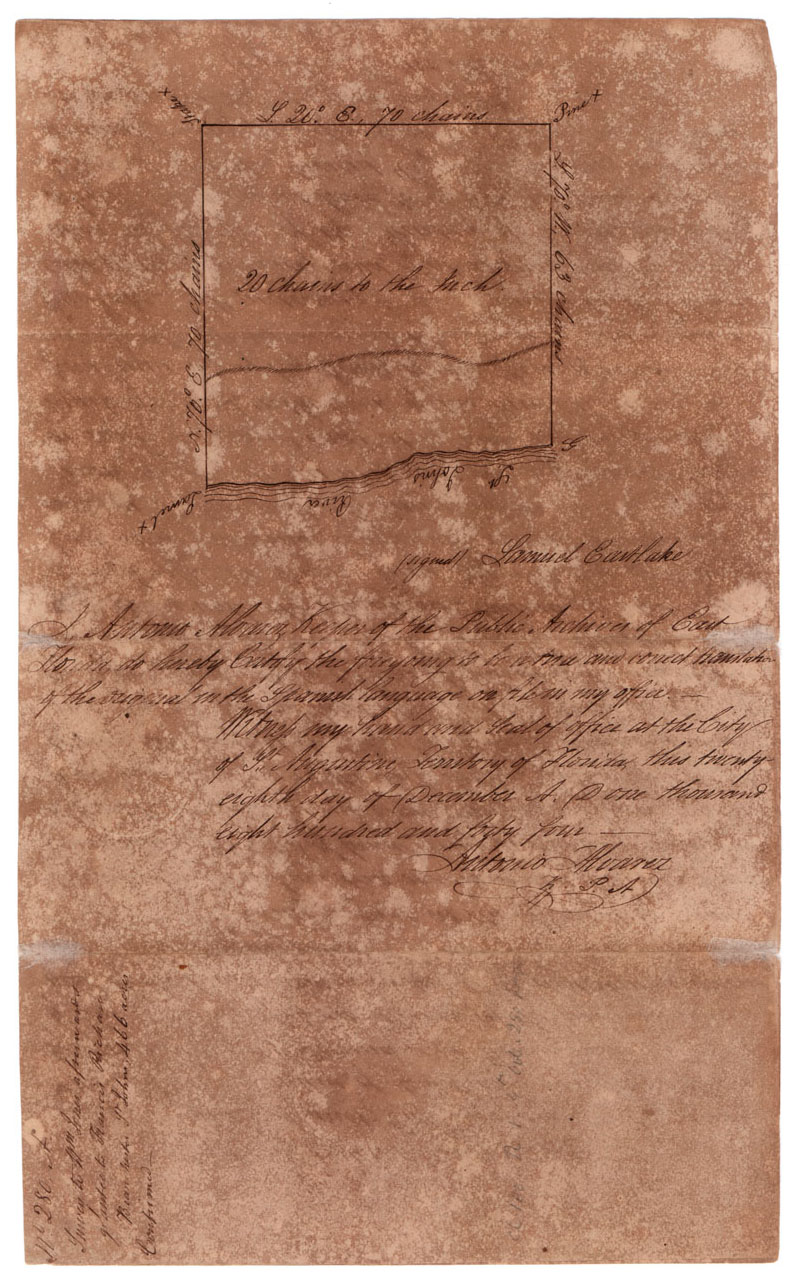 S. 20° E. 70 chains
Pine +
70° W. 63 chains
20 chains to the Inch.
70° E. 70 chains
Laurel +
River St Johns
(signed) Samuel Eastlake
I. Antonio Alvarez Keeper of the Public Archives of East
Florida do hereby Certify the foregoing to be a true and correct translation
of the original in the Spanish language on file in my office. —
Witness my hand and Seal of office at the City
of St. Augustine Territory of Florida this twenty
eighth day of December A. D one thousand
eight hundred and forty four —
Antonio Alvarez
K. P. A
No 280
Survey to Wm
to Francis Richard
River St Johns 466 acres
Confirmed —